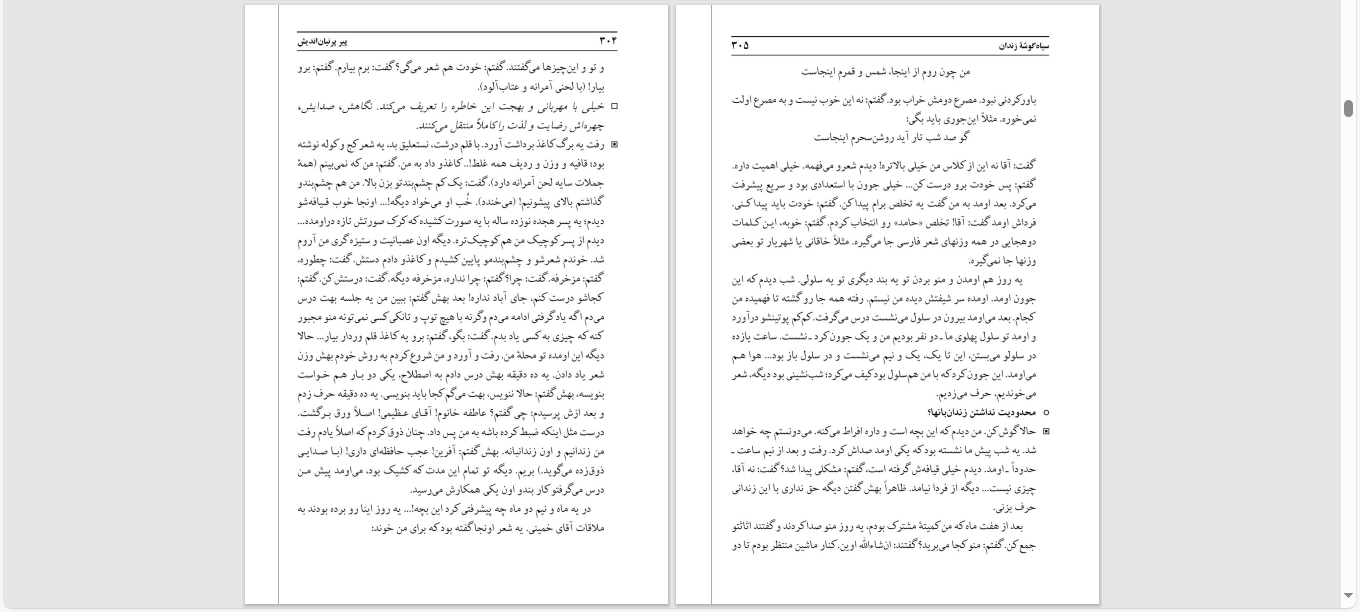 ۳۰۴
پیر پرنیان‌اندیش
و تو و این‌چیزها می‌گفتند. گفتم: خودت هم شعر می‌گی؟ گفت: برم بیارم. گفتم: برو
بیار! (با لحنی آمرانه و عتاب‌آلود).
□ خیلی با مهربانی و بهجت این خاطره را تعریف می‌کند. نگاهش، صدایش،
چهره‌اش رضایت و لذت را کاملاً منتقل می‌کنند.
▣ رفت یه برگ کاغذ برداشت آورد. با قلم درشت، نستعلیق بد، یه شعر کج و کوله نوشته
بود؛ قافیه و وزن و ردیف همه غلط!.. کاغذو داد به من. گفتم: من که نمی‌بینم (همهٔ
جملات سایه لحن آمرانه دارد). گفت: یک کم چشم‌بندتو بزن بالا. من هم چشم‌بندو
گذاشتم بالای پیشونیم! (می‌خندد). خُب او می‌خواد دیگه!... اونجا خوب قیافه‌شو
دیدم؛ یه پسر هجده نوزده ساله با یه صورت کشیده که کرک صورتش تازه دراومده...
دیدم از پسر کوچیک من هم کوچیک‌تره. دیگه اون عصبانیت و ستیزه‌گری من آروم
شد. خوندم شعرشو و چشم‌بندمو پایین کشیدم و کاغذو دادم دستش. گفت: چطوره،
گفتم: مزخرفه. گفت: چرا؟ گفتم: چرا نداره، مزخرفه دیگه. گفت: درستش کن. گفتم:
کجاشو درست کنم، جای آباد نداره! بعد بهش گفتم: ببین من یه جلسه بهت درس
می‌دم اگه یاد گرفتی ادامه می‌دم وگرنه با هیچ توپ و تانکی کسی نمی‌تونه منو مجبور
کنه که چیزی به کسی یاد بدم. گفت: بگو. گفتم: برو یه کاغذ قلم وردار بیار... حالا
دیگه این اومده تو محلهٔ من. رفت و آورد و من شروع کردم به روش خودم بهش وزن
شعر یاد دادن. یه ده دقیقه بهش درس دادم به اصطلاح، یکی دو بـار هـم خـواست
بنویسه، بهش گفتم: حالا ننویس، بهت می‌گم کجا باید بنویسی. یه ده دقیقه حرف زدم
و بعد ازش پرسیدم: چی گفتم؟ عاطفه خانوم! آقـای عـظیمی! اصـلاً ورق بـرگشت.
درست مثل اینکه ضبط کرده باشه به من پس داد. چنان ذوق کردم که اصلاً یادم رفت
من زندانیم و اون زندانبانه. بهش گفتم: آفرین! عجب حافظه‌ای داری! (بـا صـدایـی
ذوق‌زده می‌گوید.) بریم. دیگه تو تمام این مدت که کشیک بود، می‌اومد پیش مـن
درس می‌گرفتو کار بندو اون یکی همکارش می‌رسید.
در یه ماه و نیم دو ماه چه پیشرفتی کرد این بچه!... یه روز اینا رو برده بودند به
ملاقات آقای خمینی. یه شعر اونجا گفته بود که برای من خوند:
سیاه‌گوشهٔ زندان
۳۰۵
من چون روم از اینجا، شمس و قمرم اینجاست
باورکردنی نبود. مصرع دومش خراب بود. گفتم: نه این خوب نیست و به مصرع اولت
نمی‌خوره. مثلاً این‌جوری باید بگی:
گو صد شب تار آید روشن‌سحرم اینجاست
گفت: آقا نه این از کلاس من خیلی بالاتره! دیدم شعرو می‌فهمه. خیلی اهمیت داره.
گفتم: پس خودت برو درست کن... خیلی جوون با استعدادی بود و سریع پیشرفت
می‌کرد. بعد اومد به من گفت یه تخلص برام پیدا کن. گفتم: خودت باید پیدا کـنی.
فرداش اومد گفت: آقا! تخلص «حامد» رو انتخاب کردم. گفتم: خوبه، ایـن کـلمات
دوهجایی در همه وزنهای شعر فارسی جا می‌گیره. مثلاً خاقانی یا شهریار تو بعضی
وزنها جا نمی‌گیره.
یه روز هم اومدن و منو بردن تو یه بند دیگری تو یه سلولی. شب دیدم که این
جوون اومد. اومده سر شیفتش دیده من نیستم. رفته همه جا رو گشته تا فهمیده من
کجام. بعد می‌اومد بیرون در سلول می‌نشست درس می‌گرفت. کم‌کم پوتینشو درآورد
و اومد تو سلول پهلوی ما ـ دو نفر بودیم من و یک جوون کرد ـ نشست. ساعت یازده
در سلولو می‌بستن، این تا یک، یک و نیم می‌نشست و در سلول باز بود... هوا هـم
می‌اومد. این جوون کرد که با من هم‌سلول بود کیف می‌کرد؛ شب‌نشینی بود دیگه، شعر
می‌خوندیم، حرف می‌زدیم.
○ محدودیت نداشتن زندان‌بانها؟
▣ حالا گوش کن. من دیدم که این بچه است و داره افراط می‌کنه. می‌دونستم چه خواهد
شد. یه شب پیش ما نشسته بود که یکی اومد صداش کرد. رفت و بعد از نیم ساعت ـ
حدوداً ـ اومد. دیدم خیلی قیافه‌ش گرفته است، گفتم: مشکلی پیدا شد؟ گفت: نه آقا،
چیزی نیست... دیگه از فردا نیامد. ظاهراً بهش گفتن دیگه حق نداری با این زندانی
حرف بزنی.
بعد از هفت ماه که من کمیتهٔ مشترک بودم، یه روز منو صدا کردند و گفتند اثاثتو
جمع کن. گفتم: منو کجا می‌برید؟ گفتند: ان‌شاءالله اوین. کنار ماشین منتظر بودم تا دو